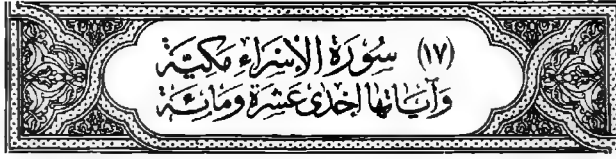 (١٧) سُورَة الإِسْرَاءِ مَكِّيَّة
وَآيَاتهَا إِحْدَى عَشَرَة وَمِائَة